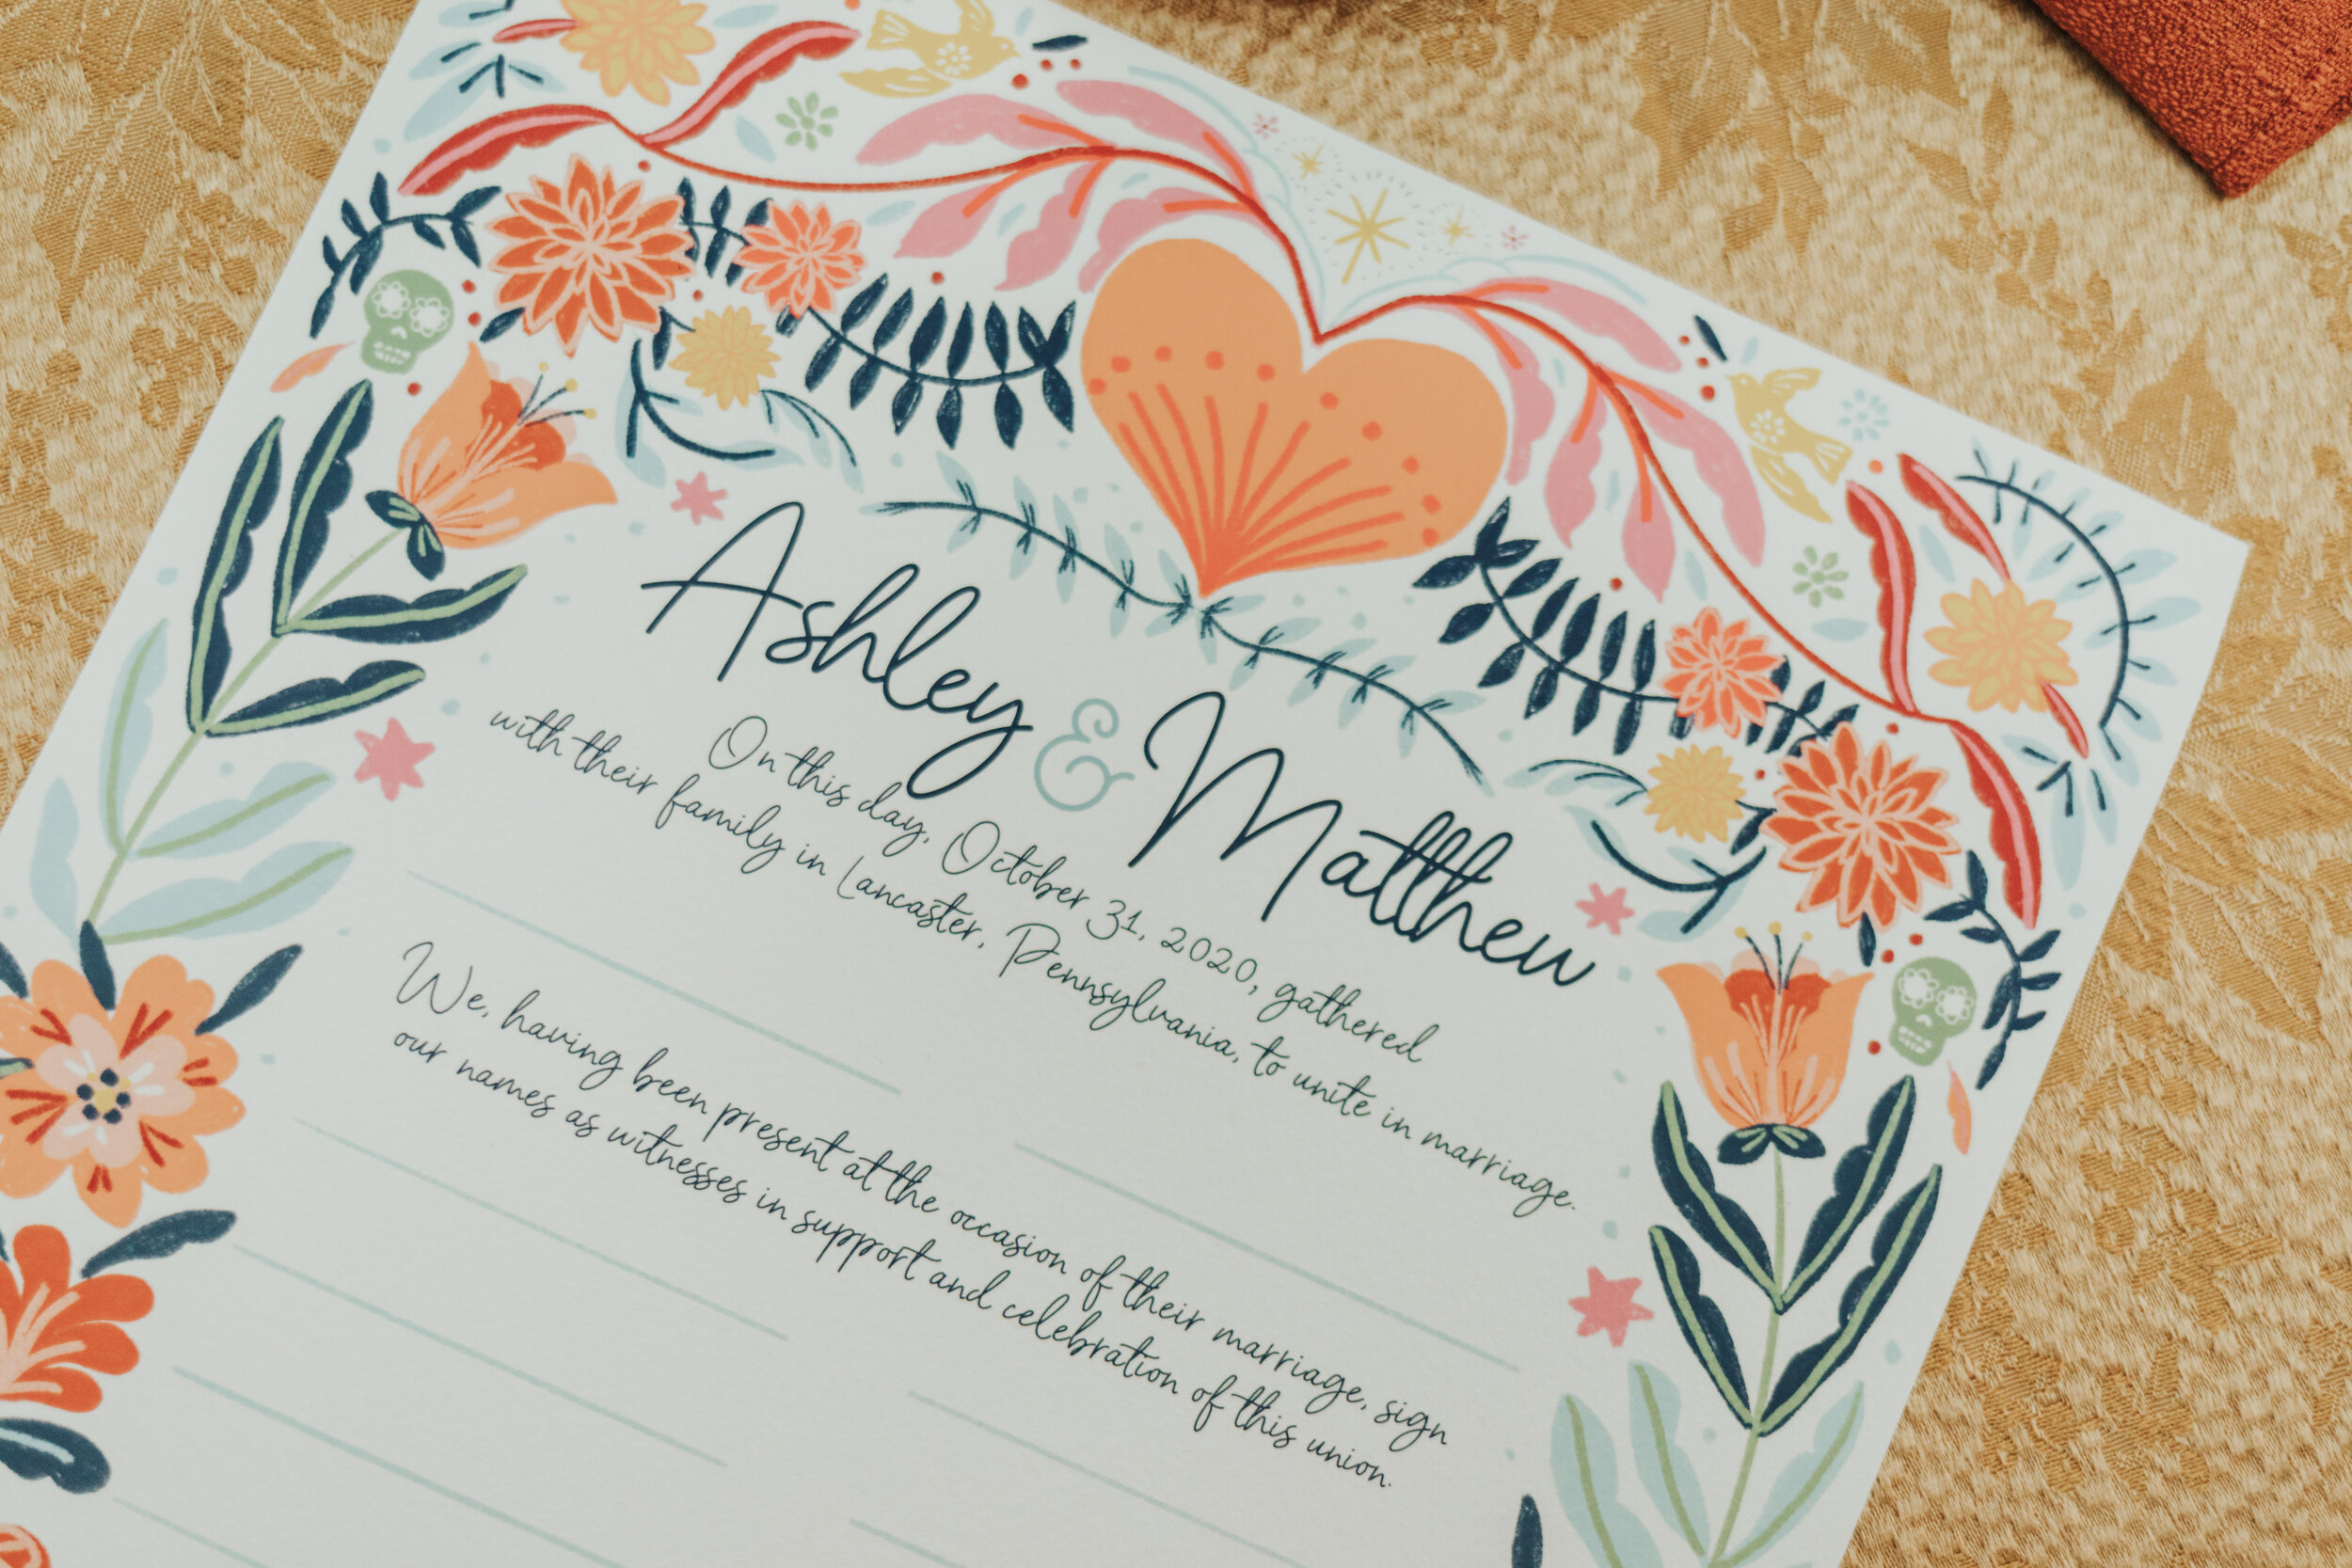 Ashley & Matthew
On this day, October 31, 2020, gathered
with their family in Lancaster, Pennsylvania, to unite in marriage.
We, having been present at the occasion of their marriage, sign
our names as witnesses in support and celebration of this union.